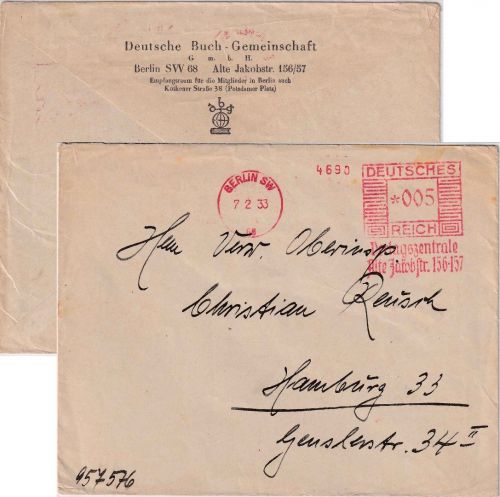 Deutsche Buch-Gemeinschaft
G. m. b. H.
Berlin SW 68 Alte Jakobstr. 156/57
Empfangsraum für die Mitglieder in Berlin auch
Köthener Straße 38 (Potsdamer Platz)
4690
DEUTSCHES
*005
REICH
BERLIN SW
7 2 33
68
Verlagszentrale
Alte Jakobstr. 156-157
Herrn Verw. Oberinsp.
Christian Reusch
Hamburg 33
Genslerstr. 34 II
957576